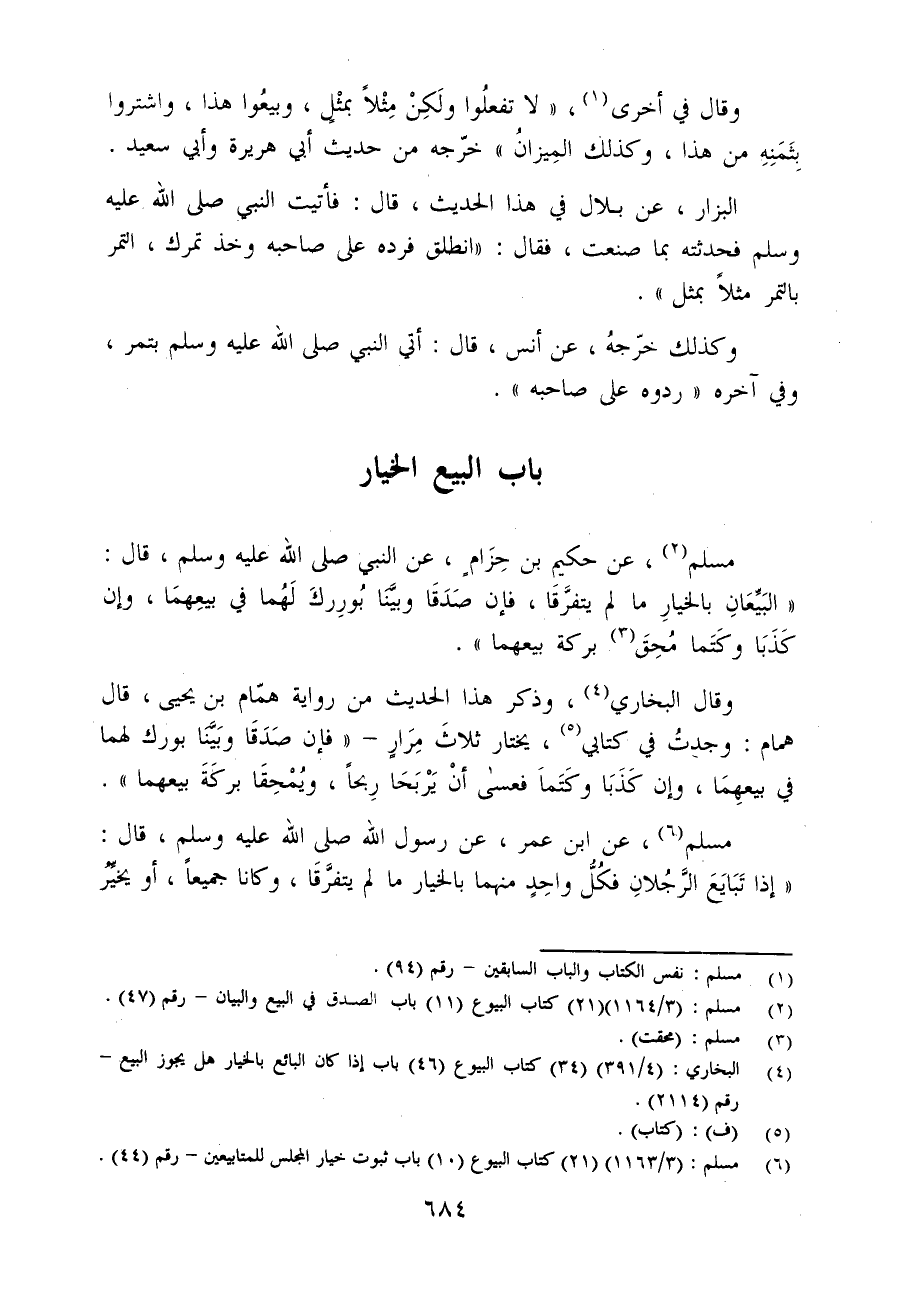 وقال في أخرى(١) ، « لا تفعلُوا ولَكِنْ مِثْلاً بمثْلٍ ، وبيعُوا هذا ، واشتروا
بِثَمَنِهِ من هذا ، وكذلك المِيزانُ » خرّجه من حديث أبي هريرة وأبي سعيد .
البزار ، عن بـلال في هذا الحديث ، قال : فأتيت النبي صلى الله عليه
وسلم فحدثته بما صنعت ، فقال : «انطلق فرده على صاحبه وخذ تمرك ، التمر
بالتمر مثلاً بمثل » .
وكذلك خرّجهُ ، عن أنس ، قال : أتي النبي صلى الله عليه وسلم بتمر ،
وفي آخره « ردوه على صاحبه » .
باب البيع الخيار
مسلم(٢) ، عن حكيم بن حِزَامٍ ، عن النبي صلى الله عليه وسلم ، قال :
« البَيِّعَانِ بالخيارِ ما لم يتفرَّقَا ، فإن صَدَقَا وبيَّنَا بُورِركَ لَهُما في بيعِهمَا ، وإن
كَذَبَا وكَتَما مُحِقَ(٣) بركة بيعهما » .
وقال البخاري(٤) ، وذكر هذا الحديث من رواية همّام بن يحيى ، قال
همام : وجدتُ في كتابي(٥) ، يختار ثلاثَ مِرَارٍ – « فإن صَدَقَا وبَيَّنَا بورك لهما
في بيعهِمَا ، وإن كَذَبَا وكَتَماَ فعسىٰ أنْ يَرْبَحَا رِبحاً ، ويُمْحِقَا بركَةَ بيعهما » .
مسلم(٦) ، عن ابن عمر ، عن رسول الله صلى الله عليه وسلم ، قال :
« إذا تَبَايَعَ الرَّجُلانِ فكُلُّ واحِدٍ منهما بالخيار ما لم يتفرَّقَا ، وكانا جميعاً ، أو يخيِّرُ
(١) مسلم : نفس الكتاب والباب السابقين – رقم (٩٤) .
(٢) مسلم : (١١٦٤/٣)(٢١) كتاب البيوع (١١) باب الصدق في البيع والبيان – رقم (٤٧) .
(٣) مسلم : (محقت) .
(٤) البخاري : (٣٩١/٤) (٣٤) كتاب البيوع (٤٦) باب إذا كان البائع بالخيار هل يجوز البيع –
رقم (٢١١٤) .
(٥) (ف) : (كتاب) .
(٦) مسلم : (١١٦٣/٣) (٢١) كتاب البيوع (١٠) باب ثبوت خيار المجلس للمتابيعين – رقم (٤٤) .
٦٨٤